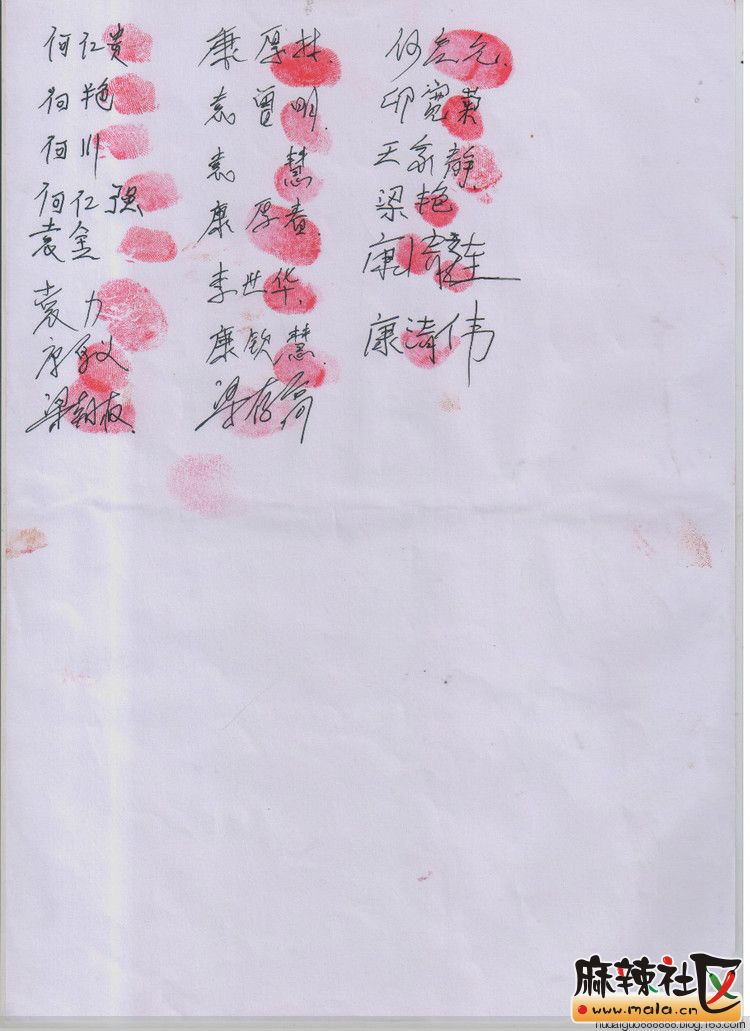 何仁贵 康厚林
何艳 袁曾明 印宽荣
何川 袁慧 王家静
何仁强 康厚春 梁艳
袁金 李世华
袁力 康钦慧 康涛伟
梁朝板 梁存高
麻辣社区
www.mala.cn
hudaiguo888888.blog.163.com